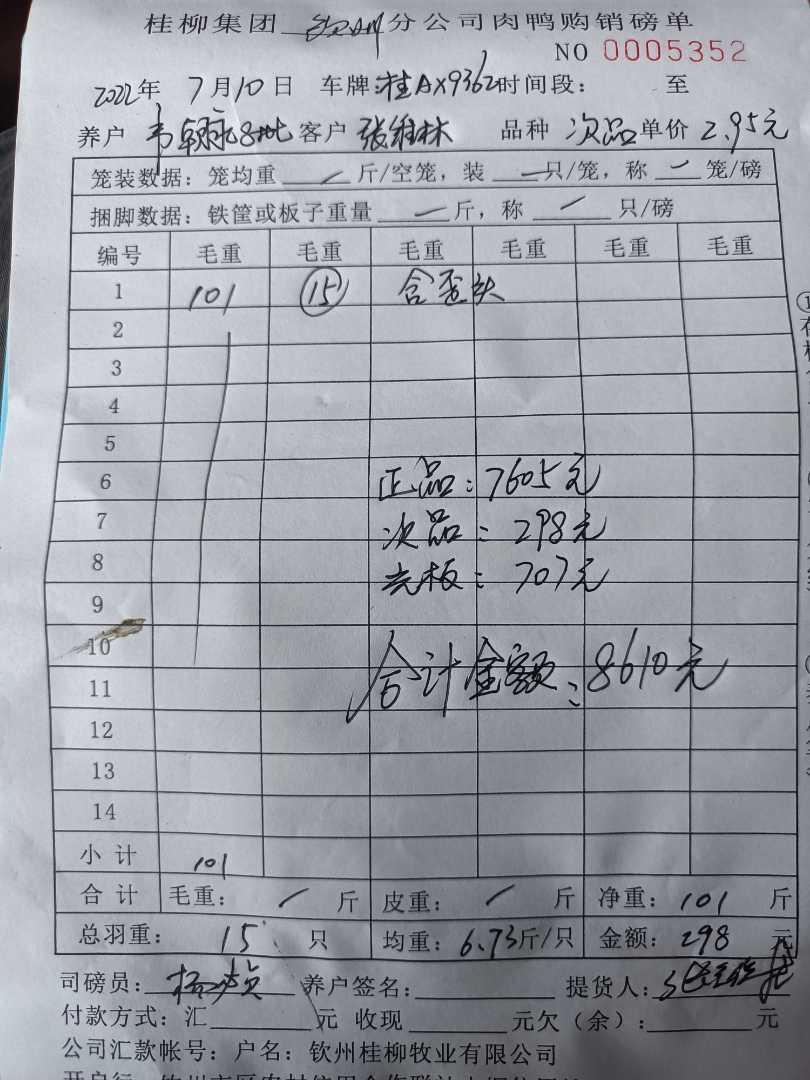 桂柳集团 钦州 分公司肉鸭购销磅单
NO 0005352
2022年 7月10日 车牌:桂AX9362时间段： 至
养户 韦 批 客户 张维林 品种 次品 单价 2.95元
笼装数据：笼均重 / 斤/空笼，装 一 只/笼，称 一 笼/磅
捆脚数据：铁筐或板子重量 一 斤，称 / 只/磅
编号 毛重 毛重 毛重 毛重 毛重 毛重
1 101 15 含歪头
2
3
4
5
6 正品：7605元
7 次品：298元
8 光板：707元
9
10 合计金额：8610元
11
12
13
14
小计 101
合计 毛重： / 斤 皮重： / 斤 净重：101 斤
总羽重： 15 只 均重：6.73斤/只 金额：298 元
司磅员： 杨 养户签名： 提货人：
付款方式：汇 元 收现 元欠（余）： 元
公司汇款帐号：户名：钦州桂柳牧业有限公司